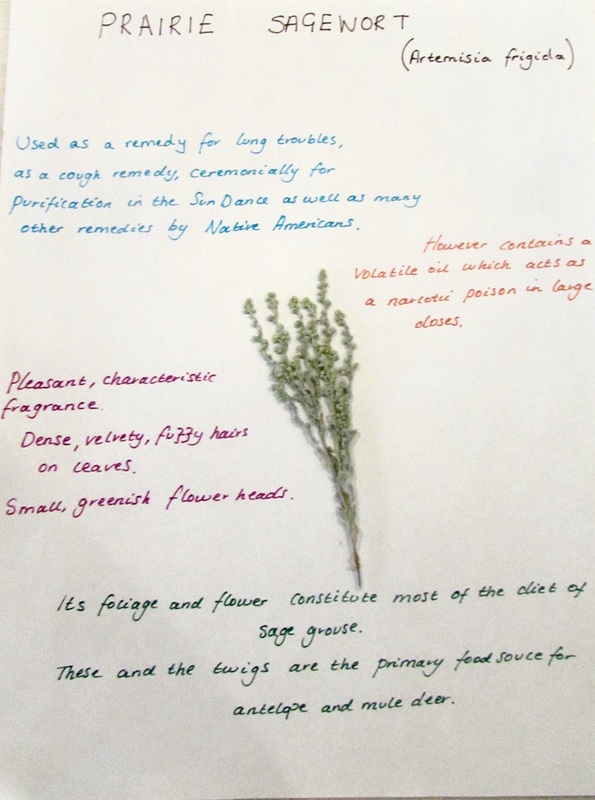 PRAIRIE SAGEWORT
(Artemisia frigida)
Used as a remedy for lung troubles,
as a cough remedy, ceremonially for
purification in the Sun Dance as well as many
other remedies by Native Americans.
However contains a
volatile oil which acts as
a narcotic poison in large
doses.
Pleasant, characteristic
fragrance.
Dense, velvety, fuzzy hairs
on leaves.
Small, greenish flower heads.
Its foliage and flower constitute most of the diet of
sage grouse.
These and the twigs are the primary food souce for
antelope and mule deer.